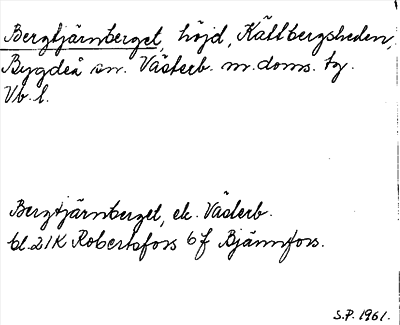 Bergtjärnberget, höjd, Kättbergsheden,
Bygdeå sn. Västerb. m. doms. tg.
Vb. l.
Bergtjärnberget, ek. Västerb.
bl. 21K Robertsfors 6f Bjännfors.
S.P. 1961.